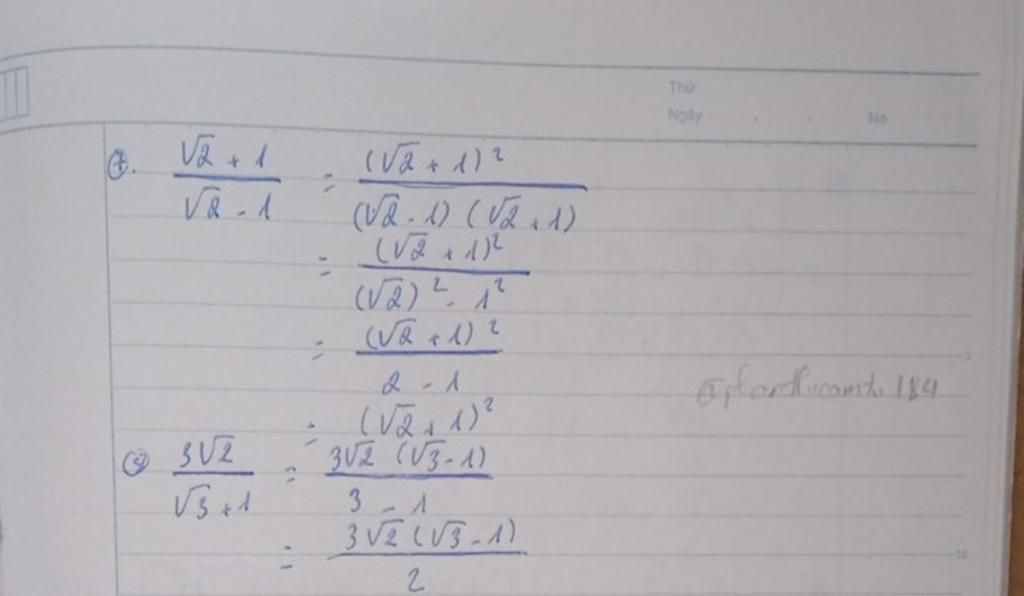 Thứ
Ngày . . No.
⑦. (√2 + 1)/(√2 - 1) = (√2 + 1)²/((√2 - 1)(√2 + 1))
= (√2 + 1)²/((√2)² - 1²)
= (√2 + 1)²/(2 - 1)
5
= (√2 + 1)²
3√2/(√3 + 1) = 3√2 (√3 - 1)/(3 - 1)
= 3√2 (√3 - 1)/2
10